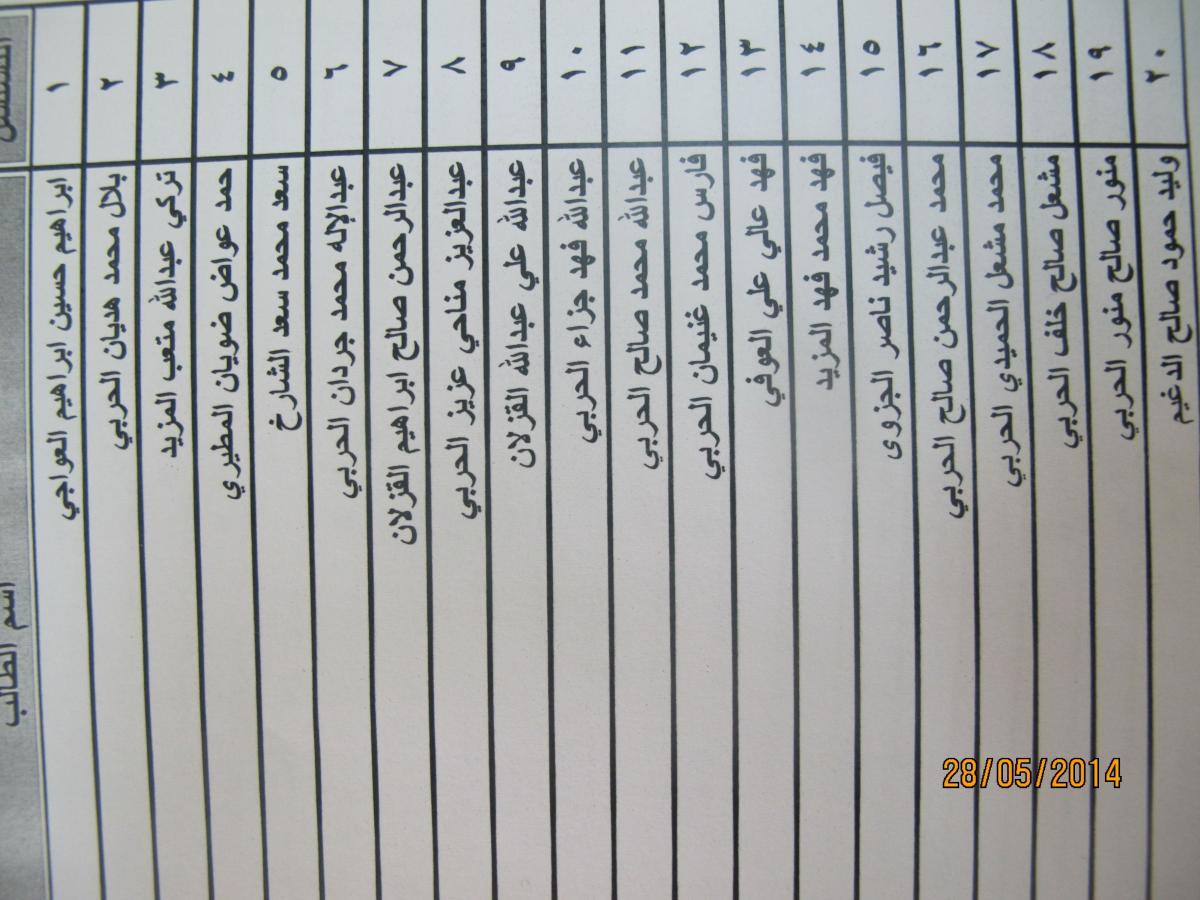 التسلسل اسم الطالب
١ ابراهيم حسين ابراهيم العواجي
٢ بلال محمد هديان الحربي
٣ تركي عبدالله متعب المزيد
٤ حمد عواض ضويان المطيري
٥ سعد محمد سعد الشارخ
٦ عبدالإله محمد جردان الحربي
٧ عبدالرحمن صالح ابراهيم القزلان
٨ عبدالعزيز مناحي عزيز الحربي
٩ عبدالله علي عبدالله القزلان
١٠ عبدالله فهد جزاء الحربي
١١ عبدالله محمد صالح الحربي
١٢ فارس محمد غنيمان الحربي
١٣ فهد عالي علي العوفي
١٤ فهد محمد فهد المزيد
١٥ فيصل رشيد ناصر الجزوى
١٦ محمد عبدالرحمن صالح الحربي
١٧ محمد مشعل الحميدي الحربي
١٨ مشعل صالح خلف الحربي
١٩ منور صالح منور الحربي
٢٠ وليد حمود صالح الدغيم
28/05/2014